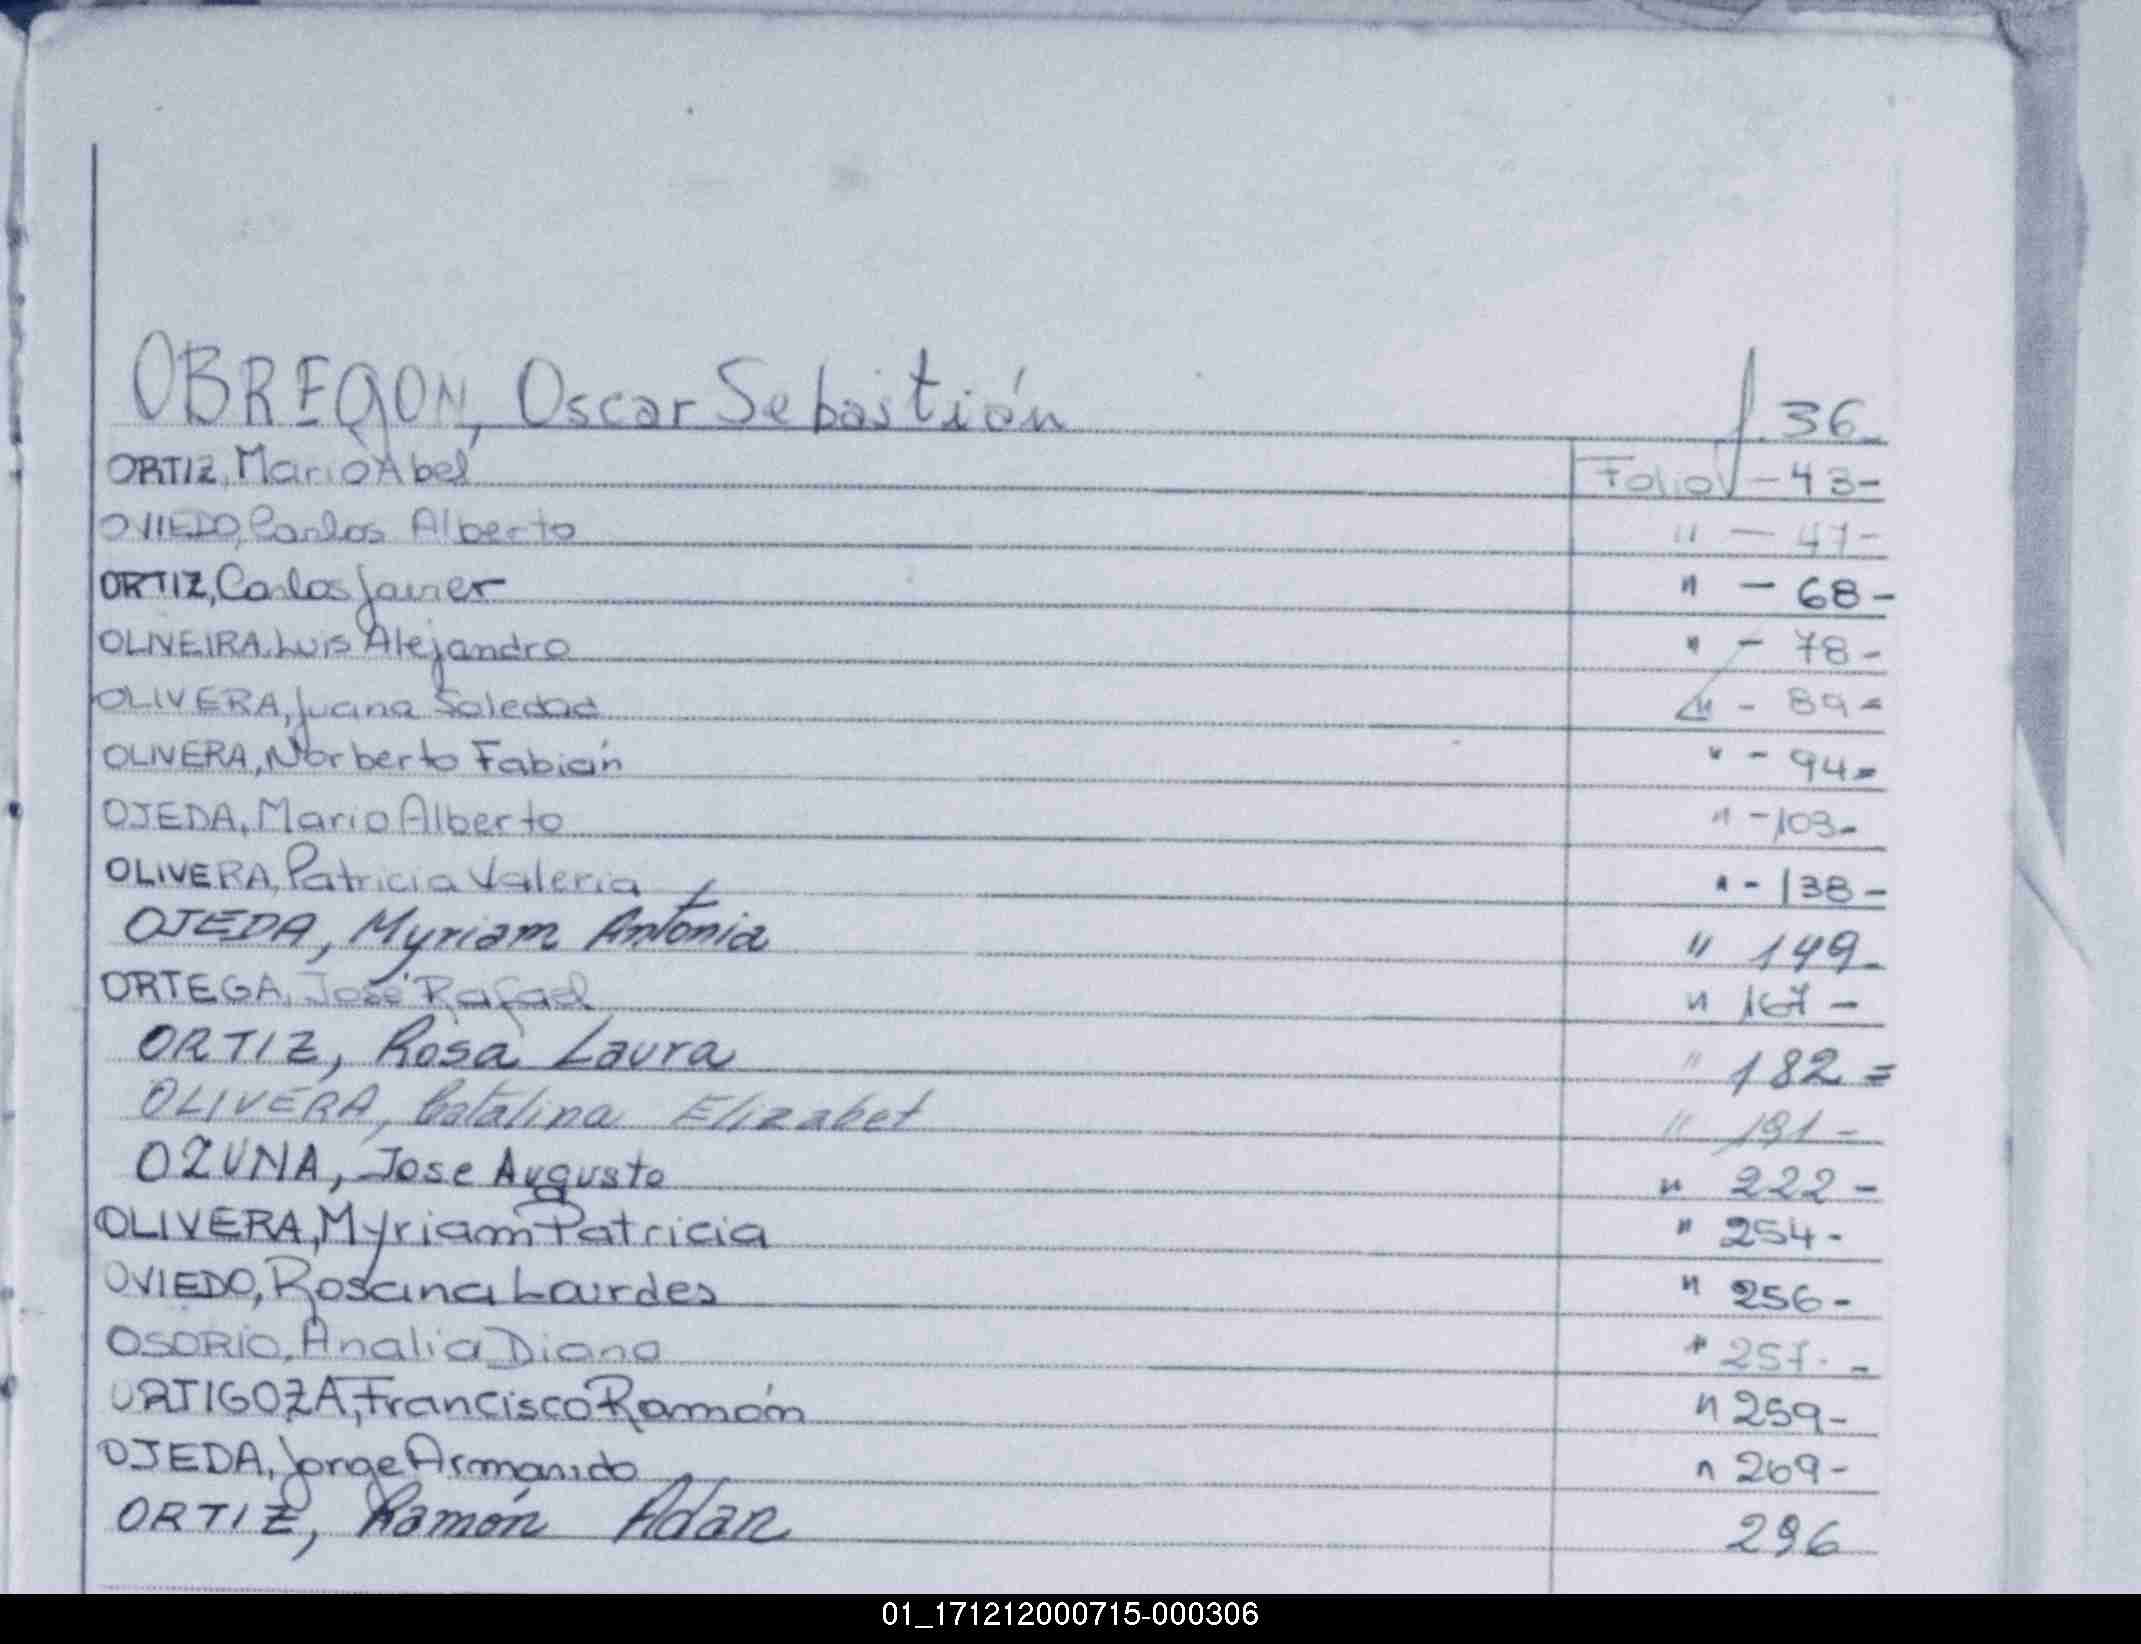 OBREGON, Oscar Sebastián f. 36-
ORTIZ, Mario Abel Folio - 43-
OVIEDO, Carlos Alberto " - 47-
ORTIZ, Carlos Javier " - 68-
OLIVEIRA, Luis Alejandro " - 78-
OLIVERA, Juana Soledad " - 89=
OLIVERA, Norberto Fabián " - 94=
OJEDA, Mario Alberto " -103-
OLIVERA, Patricia Valeria " - 138-
OJEDA, Myriam Antonia " 149-
ORTEGA, José Rafael " 167 -
ORTIZ, Rosa Laura " 182 =
OLIVERA, Catalina Elizabet " 191 -
OZUNA, Jose Augusto " 222 -
OLIVERA, Myriam Patricia " 254 -
OVIEDO, Rosana Lourdes " 256 -
OSORIO, Analia Diana " 257. -
ORTIGOZA, Francisco Ramón " 259-
OJEDA, Jorge Armando " 269-
ORTIZ, Ramón Adan 296
01_171212000715-000306